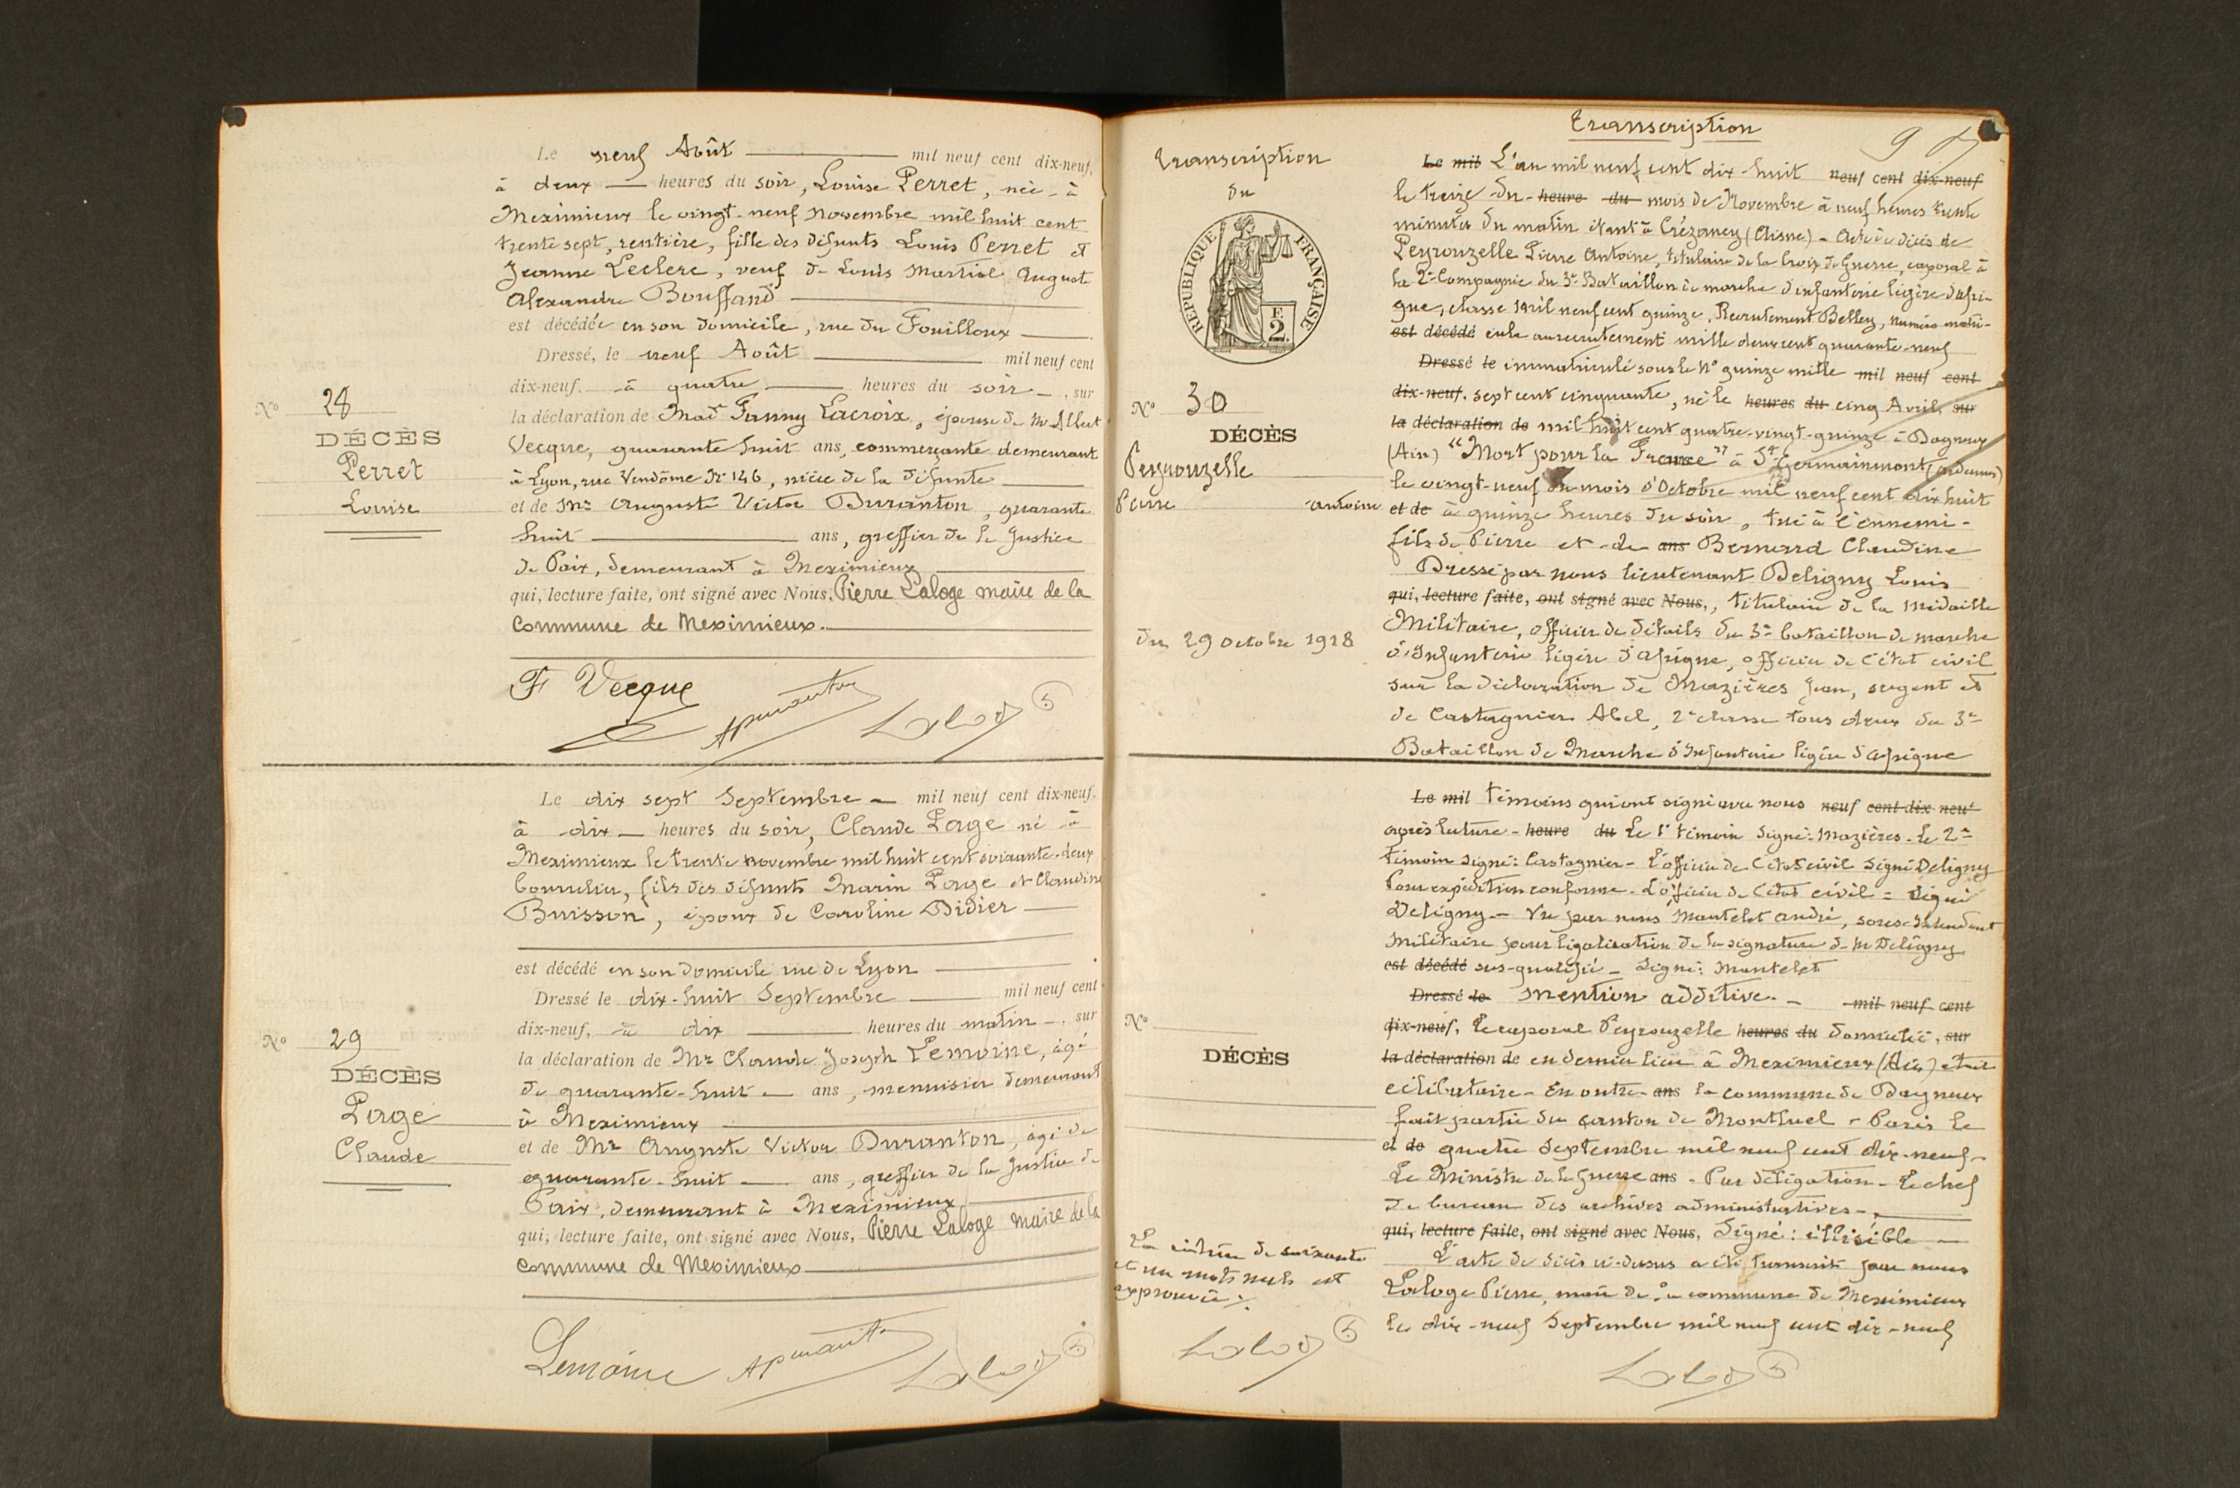 Le neuf Août mil neuf cent dix-neuf,
à deux heures du soir, Louise Perret, née à
Meximieux le vingt-neuf novembre mil huit cent
trente sept, rentière, fille des défunts Louis Perret et
Jeanne Leclerc, veuf de Louis Martial August
Alexandre Bouffand
est décédée en son domicile, rue du Fouilloux
Dressé, le neuf Août mil neuf cent
dix-neuf, à quatre heures du soir, sur
la déclaration de Made Fanny Lacroix, épouse de Mr Albert
Vecque, quarante huit ans, commerçante demeurant
à Lyon, rue Vendôme No 146, nièce de la défunte
et de Mr Auguste Victor Duranton, quarante
huit ans, greffier de la Justice
de Paix, demeurant à Meximieux
qui, lecture faite, ont signé avec Nous, Pierre Laloge maire de la
commune de Meximieux.
F Vecque
No 28
DÉCÈS
Perret
Louise
Le dix sept Septembre mil neuf cent dix-neuf,
à dix heures du soir, Claude Page né à
Meximieux le trente novembre mil huit cent soixante-deux
bourrelier, fils des défunts Marin Page et Claudine
Buisson, époux de Caroline Didier
est décédé en son domicile rue de Lyon
Dressé le dix-huit Septembre mil neuf cent
dix-neuf, à dix heures du matin, sur
la déclaration de Mr Claude Joseph Lemoine, âgé
de quarante-huit ans, menuisier demeurant
à Meximieux
et de Mr Auguste Victor Duranton, âgé de
quarante-huit ans, greffier de la Justice de
Paix, demeurant à Meximieux
qui, lecture faite, ont signé avec Nous, Pierre Laloge maire de la
commune de Meximieux
Lemoine
No 29
DÉCÈS
Page
Claude
Transcription
du
RÉPUBLIQUE FRANÇAISE
F.
2
No 30
DÉCÈS
Peyrouzelle
Pierre Antoine
du 29 octobre 1918
Transcription
Le mil L'an mil neuf cent dix-huit neuf cent dix-neuf
le treize du heure du mois de Novembre à neuf heures trente
minutes du matin étant à Crézancy (Aisne) - Acte de décès de
Peyrouzelle Pierre Antoine, titulaire de la Croix de Guerre, caporal à
la 2e Compagnie du 3e Bataillon de marche d'infanterie légère d'Afri-
que, classe mil neuf cent quinze, Recrutement Belley, numéro matri-
est décédé cule au recrutement mille deux cent quarante-neuf
Dressé le immatriculé sous le No quinze mille mil neuf cent
dix-neuf, sept cent cinquante, né le heures du cinq Avril, sur
la déclaration de mil huit cent quatre-vingt-quinze à Dagneux
(Ain) "Mort pour la France" à St Germainmont (Ardennes)
le vingt-neuf du mois d'Octobre mil neuf cent dix huit
et de à quinze heures du soir, tué à l'ennemi -
fils de Pierre et de ans Bernard Claudine
Dressé par nous lieutenant Deligny Louis
qui, lecture faite, ont signé avec Nous, titulaire de la Médaille
Militaire, officier de détails du 3e bataillon de marche
d'Infanterie légère d'Afrique, officier de l'état civil
sur la déclaration de Mazières Jean, sergent et
de Castagnier Abel, 2e classe tous deux du 3e
Bataillon de Marche d'Infanterie légère d'Afrique
Le mil témoins qui ont signé avec nous neuf cent dix neuf
après lecture - heure du Le 1r témoin signé: Mazières - Le 2e
témoin signé: Castagnier - L'officier de l'état civil signé Deligny
Pour expédition conforme - L'officier de l'état civil = signé
Deligny - Vu par nous Mantelet André, sous-Intendant
Militaire pour légalisation de la signature de Mr Deligny
est décédé sus-qualifié - Signé: Mantelet
Dressé le Mention additive - mil neuf cent
dix-neuf, Le caporal Peyrouzelle heures du domicilié, sur
la déclaration de en dernier lieu à Meximieux (Ain) était
célibataire - En outre ans la commune de Dagneux
fait partie du canton de Montluel - Paris le
et de quatre Septembre mil neuf cent dix-neuf -
Le Ministre de la Guerre ans - Par délégation - Le chef
de bureau des archives administratives -
qui, lecture faite, ont signé avec Nous, Signé: illisible
L'acte de décès ci-dessus a été transcrit par nous
Laloge Pierre, maire de la commune de Meximieux
le dix-neuf Septembre mil neuf cent dix-neuf
No
DÉCÈS
La rature de soixante
et un mots nuls est
approuvée